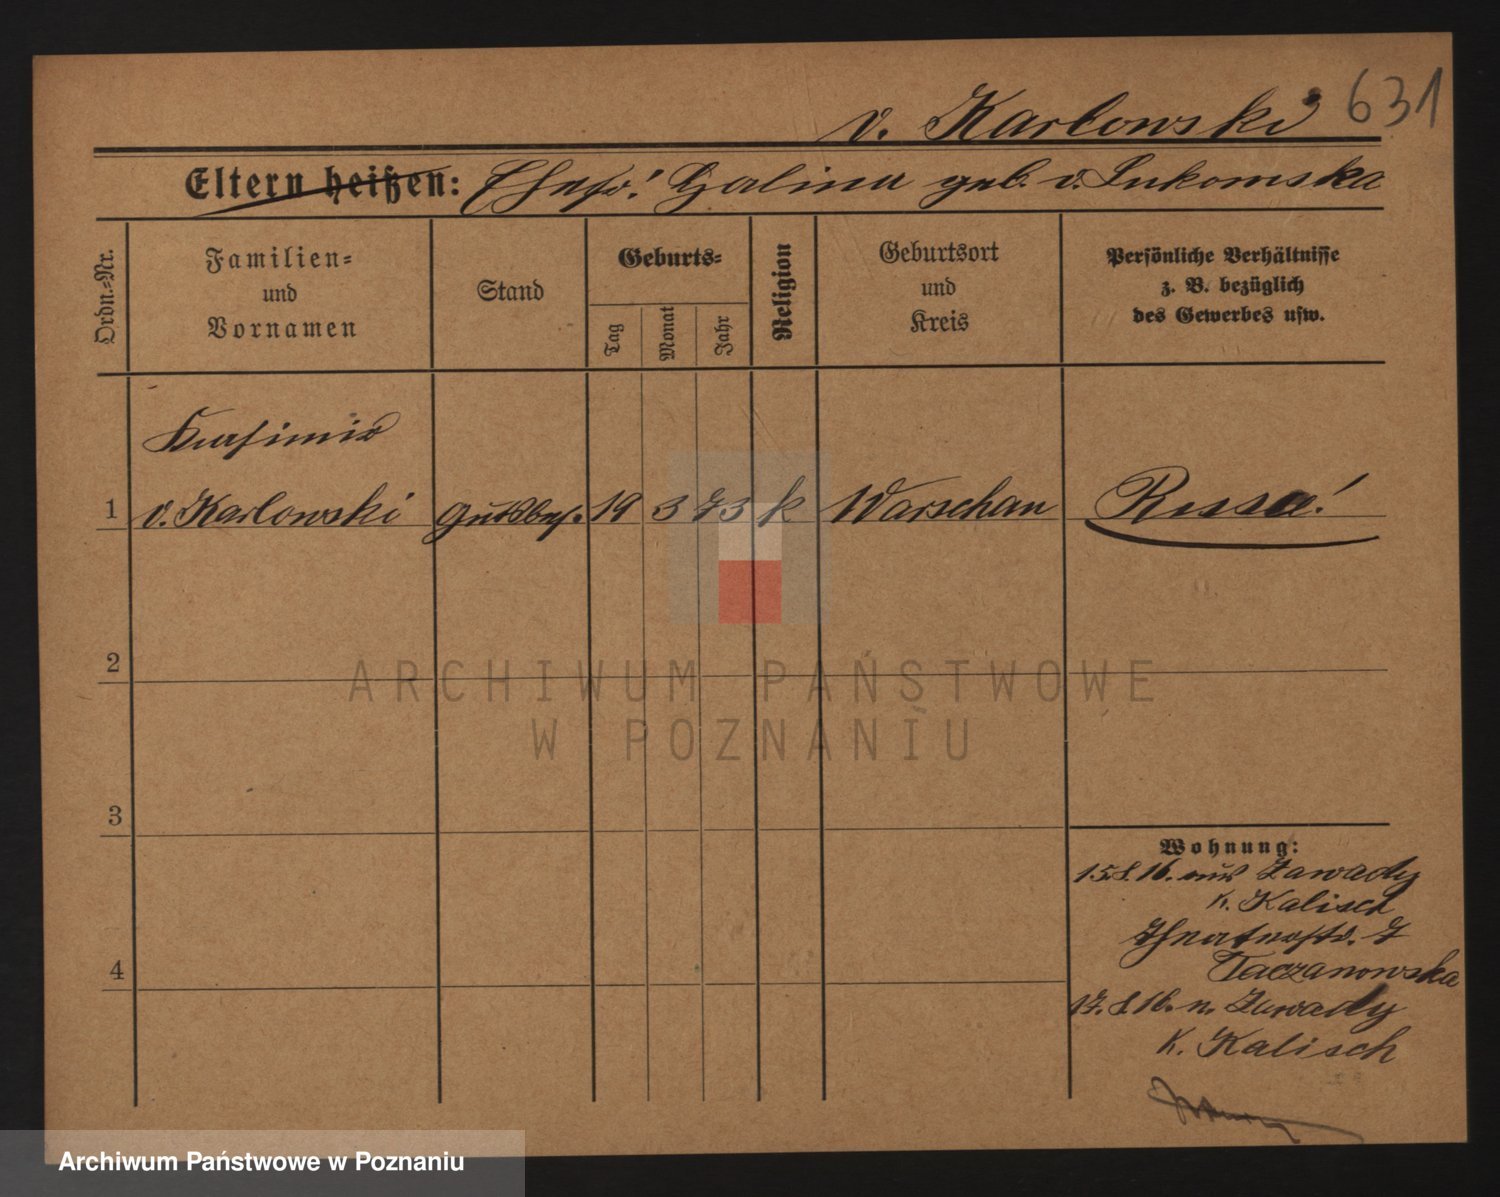 v. Karlowski 631
Eltern heißen: Ehefr: Halina geb. v. Lukomska
Ordn.=Nr.
Familien=
und
Vornamen
Stand
Geburts=
Tag
Monat
Jahr
Religion
Geburtsort
und
Kreis
Persönliche Verhältnisse
z. B. bezüglich
des Gewerbes usw.
Kasimir
1 v. Karlowski Gutsbes. 19 3 73 k Warschau Russe!
2
3
4
Wohnung:
15.8.16. aus Zawady
K. Kalisch
Theaterstr. 7
Taczanowska
17.8.16. n. Zawady
K. Kalisch
ARCHIWUM PAŃSTWOWE
W POZNANIU
Archiwum Państwowe w Poznaniu